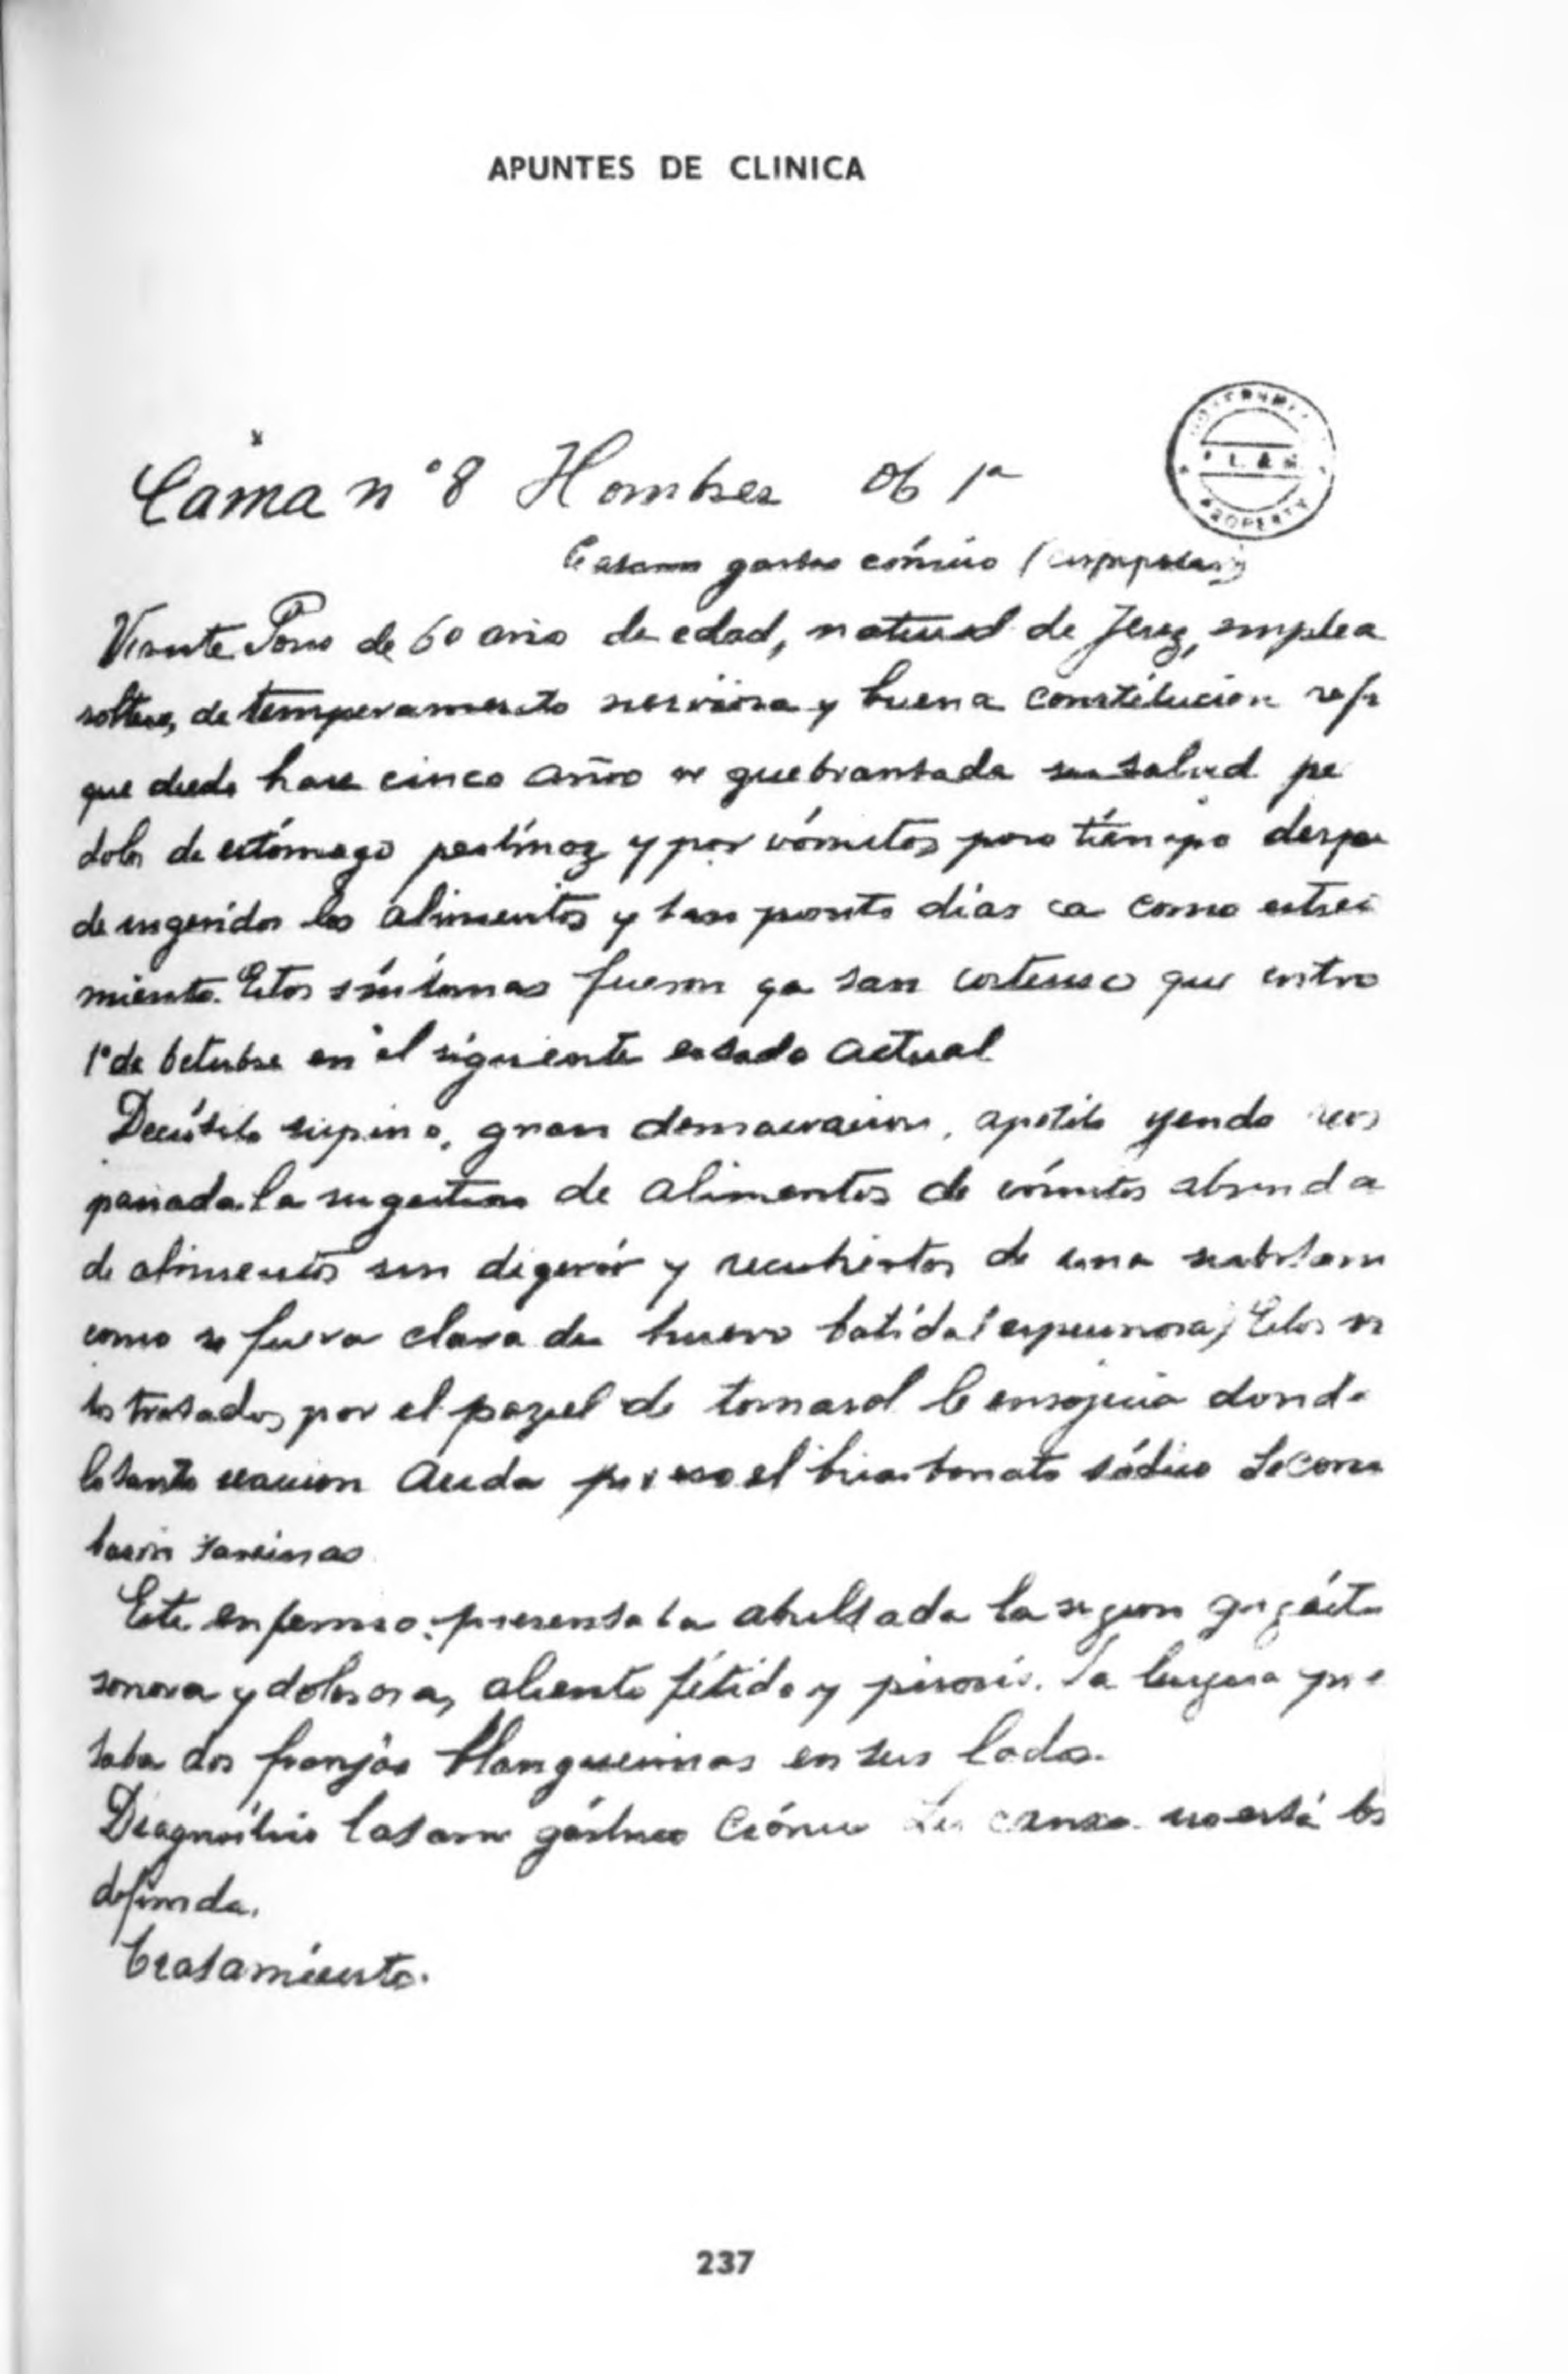 APUNTES DE CLINICA
Cama nº 8 Hombres Ob 1ª
GOVERNMENT PROPERTY
Catarro gastro crónico
Vicente Pons de 60 año de edad, natural de Jerez, emplea
soltero, de temperamento nerviosa y buena constitucion
que desde hace cinco años ve quebrantada su salud
dolor de estómago pertinaz y por vómitos poco tiempo despu
de ingeridos los alimentos y tan pronto como estreñi
miento. Estos síntomas fueron ya tan que entro
1º de Octubre en el siguiente estado actual
Decúbito supino, gran demacracion, apetito yendo
pañada la ingestion de alimentos de vómitos abunda
de alimentos sin digerir y recubiertos de una substan
como si fuera clara de huevo batida (espumosa) Estos
tos tratados por el papel de tornasol le enrojecia donde
lo tanto reaccion acida por eso el bicarbonato sódico Le
sarcinas
Este enfermo presentaba abultada la region
sonora y dolorosa, aliento fétido y pirosis. La lengua pre
taba dos franjas blanquecinas en sus lados.
Diagnóstico Catarro gástrico Crónico La causa no está
definida.
Tratamiento.
237